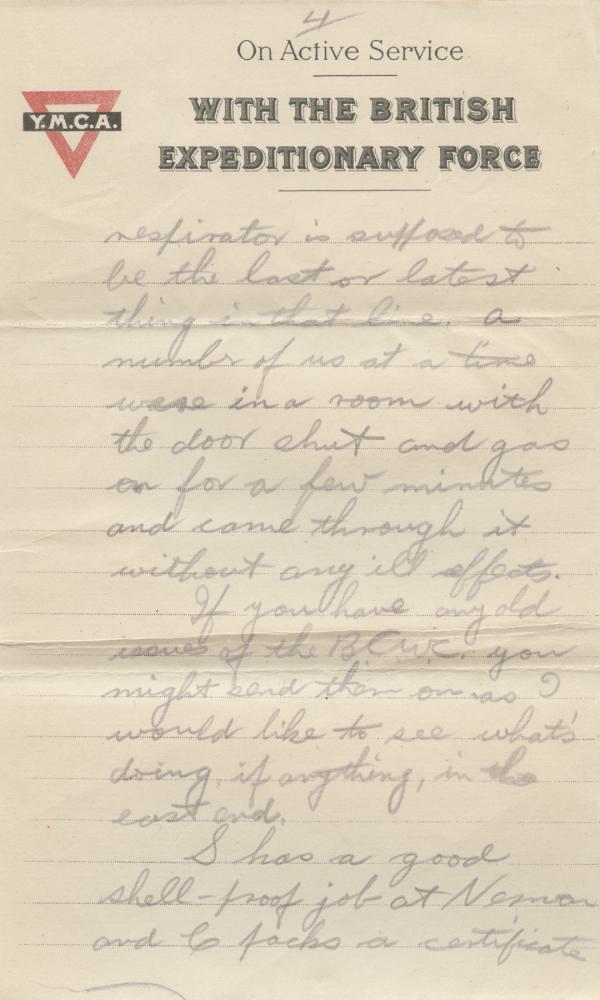 4
On Active Service
WITH THE BRITISH
Y.M.C.A.
EXPEDITIONARY FORCE
respirator is supposed to
be the last or latest
thing in that line. A
number of us at a time
were in a room with
the door shut and gas
on for a few minutes
and came through it
without any ill effects.
If you have any old
issues of the B.C.W.C. you
might send them on as I
would like to see what's
doing, if anything, in the
east end.
S has a good
shell-proof job at
and C packs a certificate